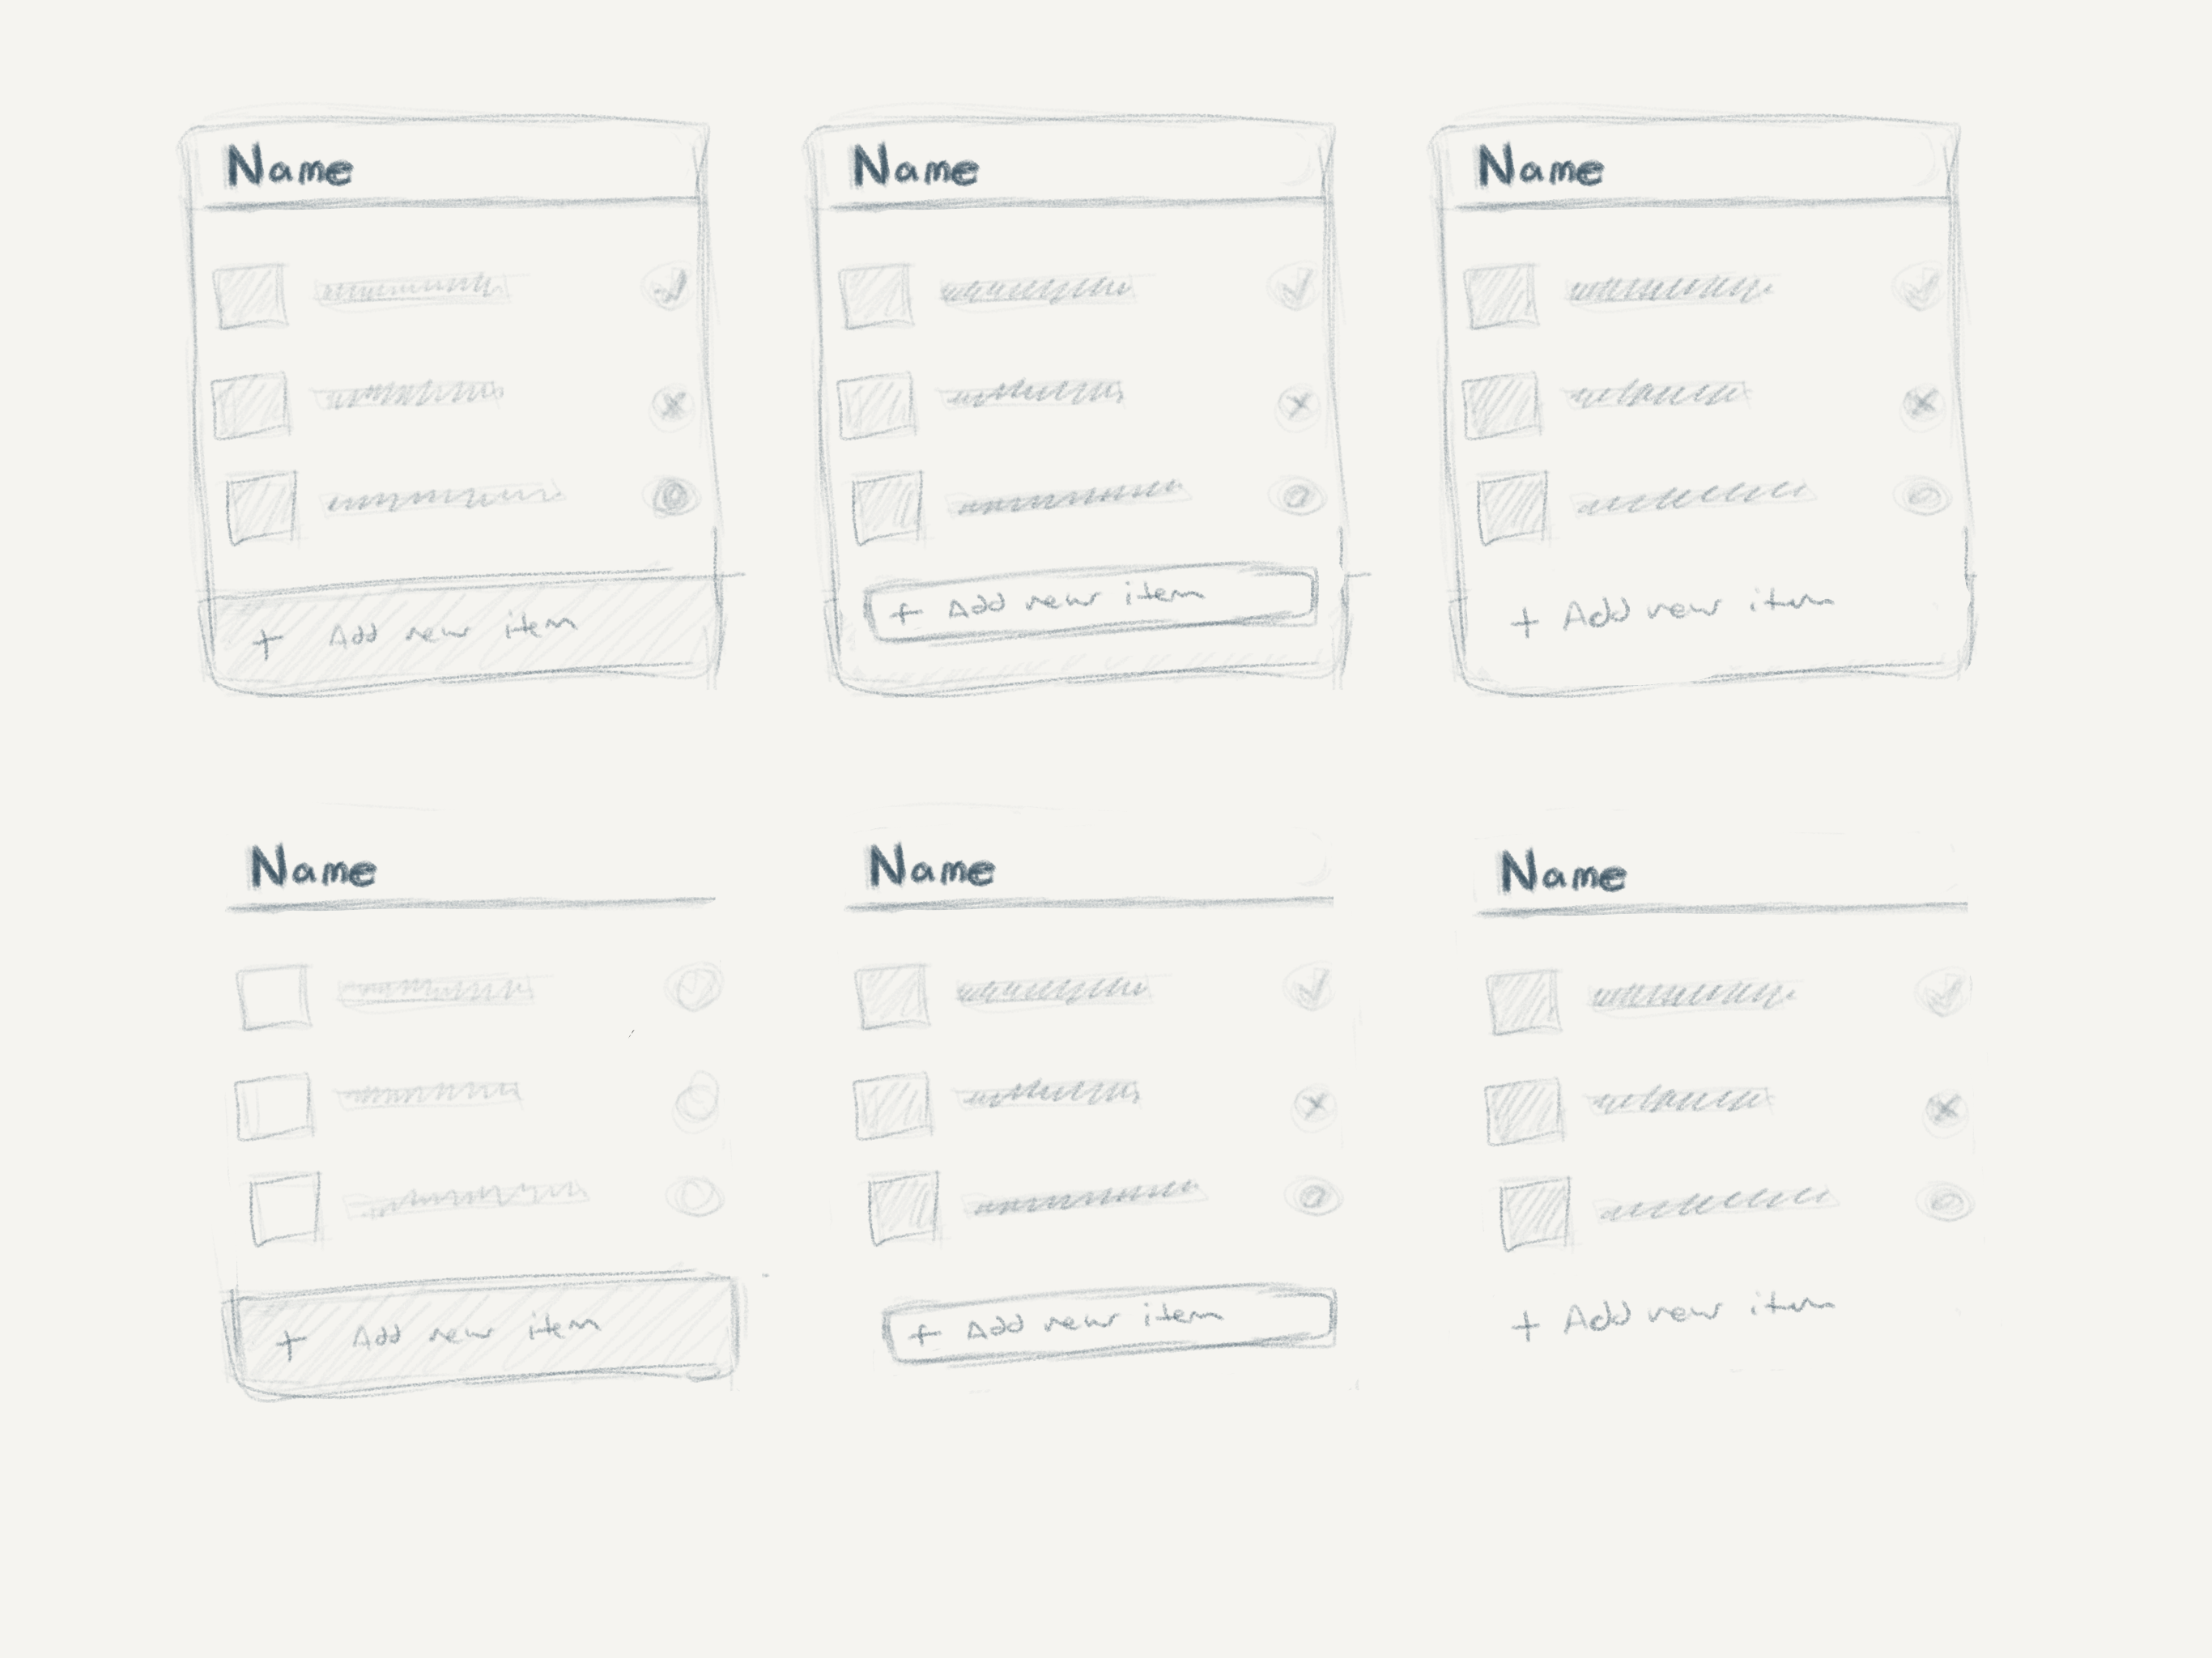 Name
+ Add new item
Name
+ Add new item
Name
+ Add new item
Name
+ Add new item
Name
+ Add new item
Name
+ Add new item